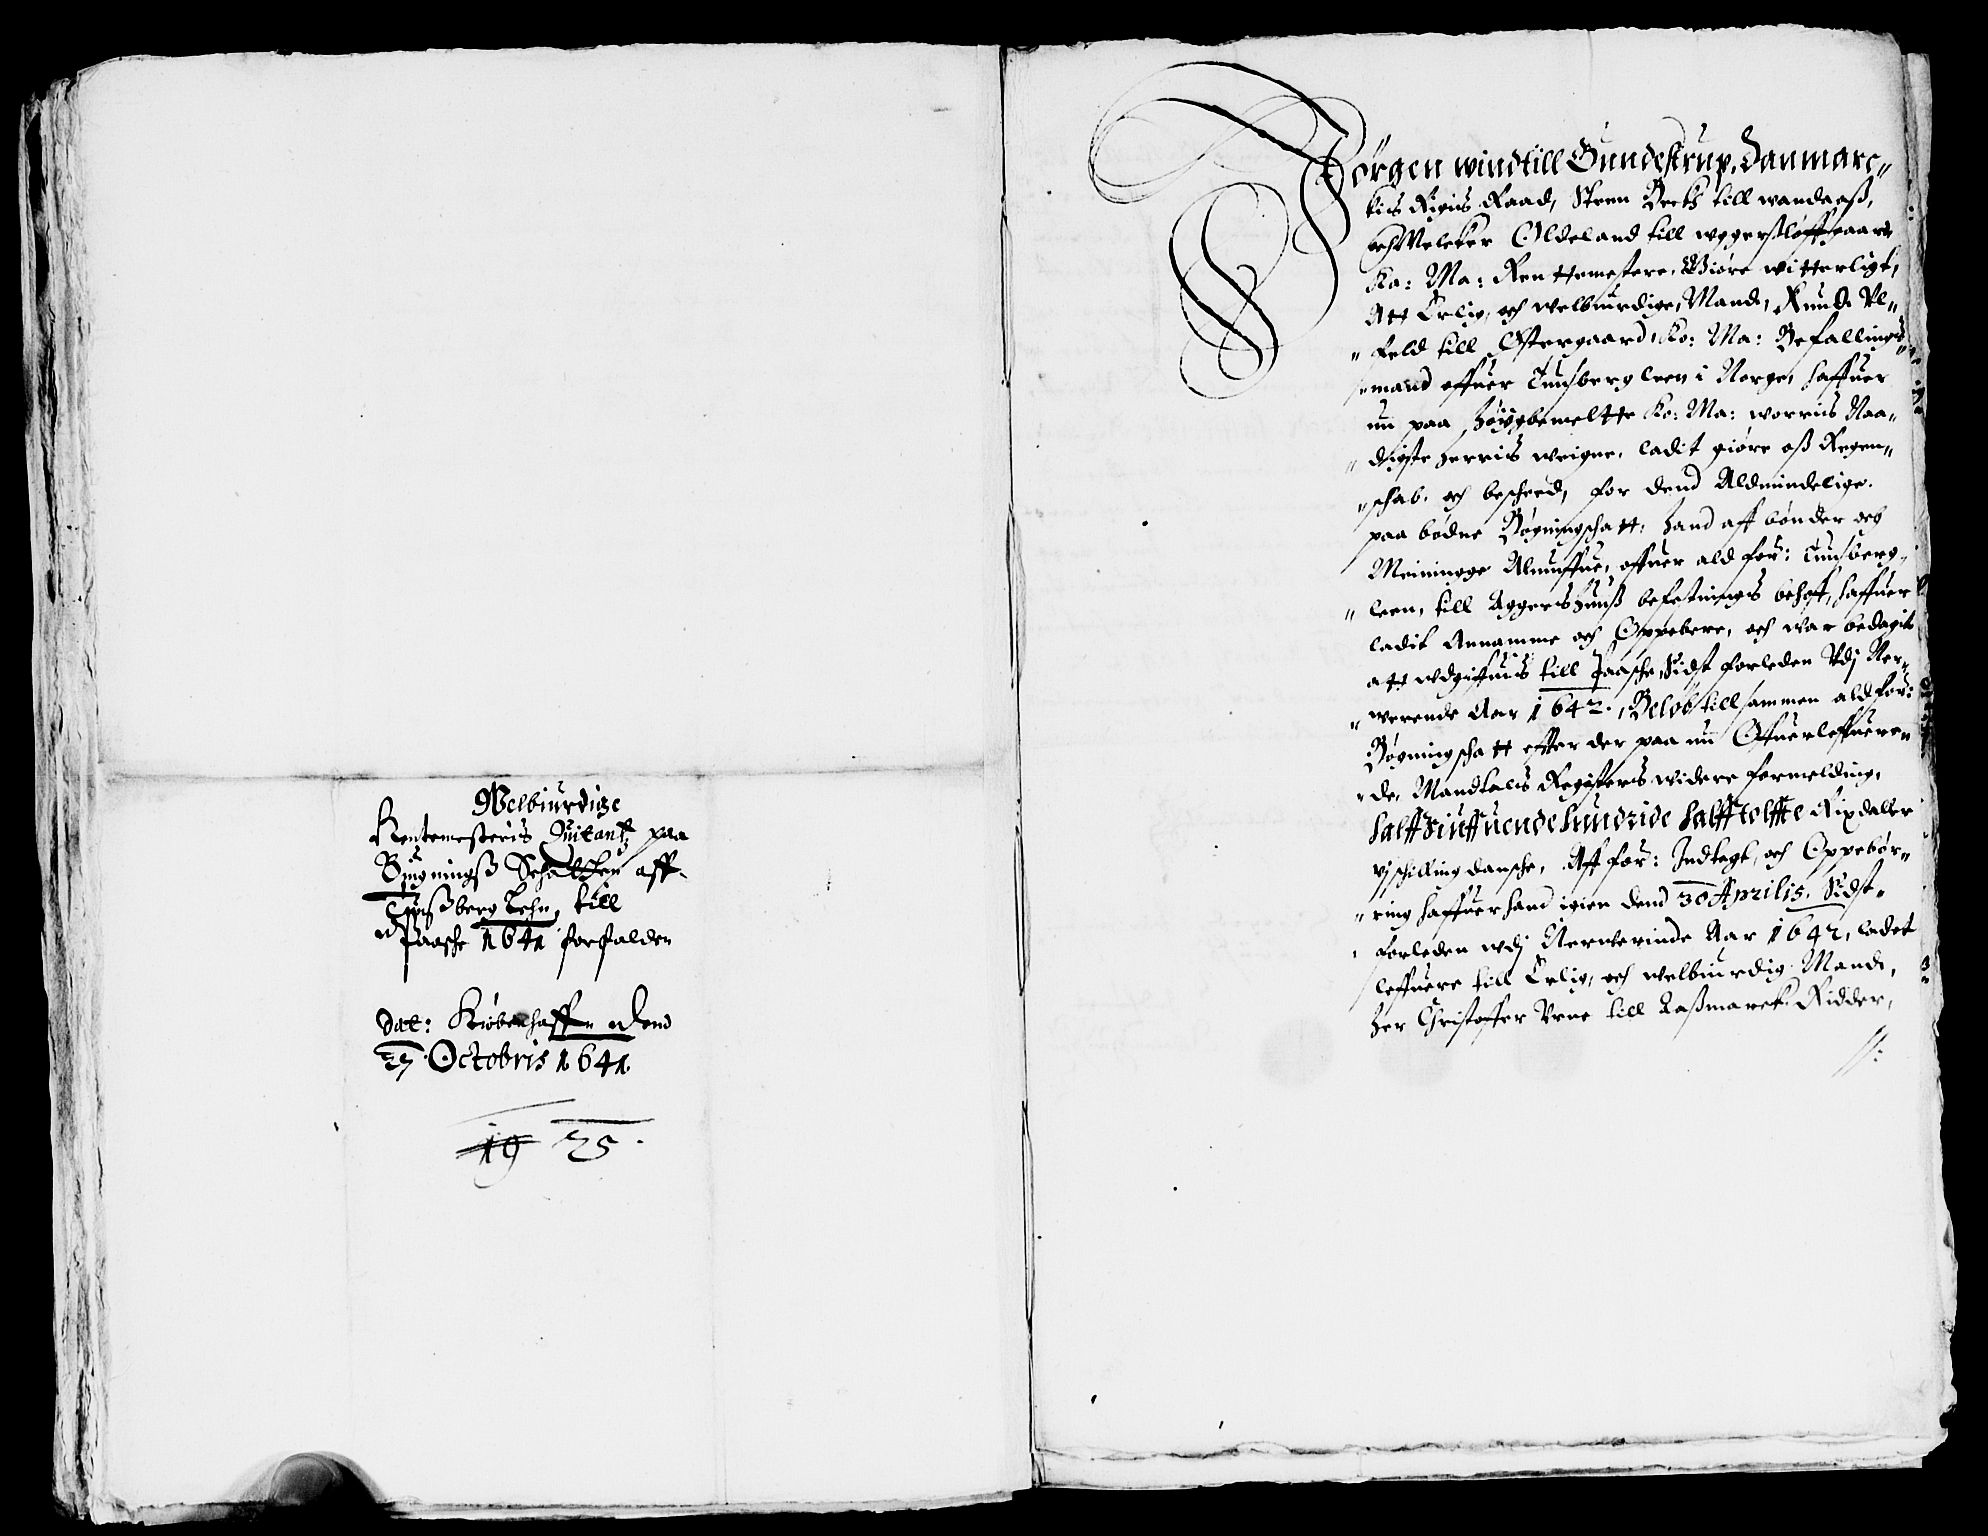 Welbiurdige
Rentemesteris Quitantz paa
Bygningß Schatten aff
Tunßberg Lehn, till
Paasche 1641 forfalden
Dat: Kiøbenhaffn Dend
27 Octobris 1641
19 25.
Jörgen wind till Gundestrup, Danmarc„
kis Rigis Raad, Steen Beck till wandaaß,
och Melcker Oldeland till wggerßløffgaard
Ko: Ma: Renttemestere, Giøre witterligt,
Att Erlig, och welbiurdige, Mand, Knud Vl„
„feld till Østergaard, Ko: Ma: Befallings
„mand offuer Tunsberg leen i Norge, haffuer
nu paa Høygbemeltte Ko: Ma: worris Naa„
„digste Herris weigne, ladit giøre oß Regen„
„schab, och bescheed, for dend Aldmindelige
paabødne Bøgningschatt, Hand aff bønder och
Meinige Almuffue, offuer ald for: Tunsberg„
„leen, till Aggershuuß befestnings behoff, haffuer
ladit Annamme och Oppebere, och war bedagit
att wdgiffuis till Paasche, Sidst forleden Vdj Ner„
„werende Aar 1642, Beløb tillsammen ald for:
Bøgningschatt effter der paa nu Offuerleffueren
„de, Mandtals Registers widere formelding,
halff Siuffuende hundride halff tolffte Rixdaller
vj schilling dansche, Aff for: Indtegt, och Oppebør„
„ring haffuer hand igien dend 30 Aprilis, Sidst„
forleden wdj Nerwerinde Aar 1642, ladet
leffuere till Erlig, och welbiurdig Mand,
Her Christoffer Vrne till Aaßmarck Ridder,
//: